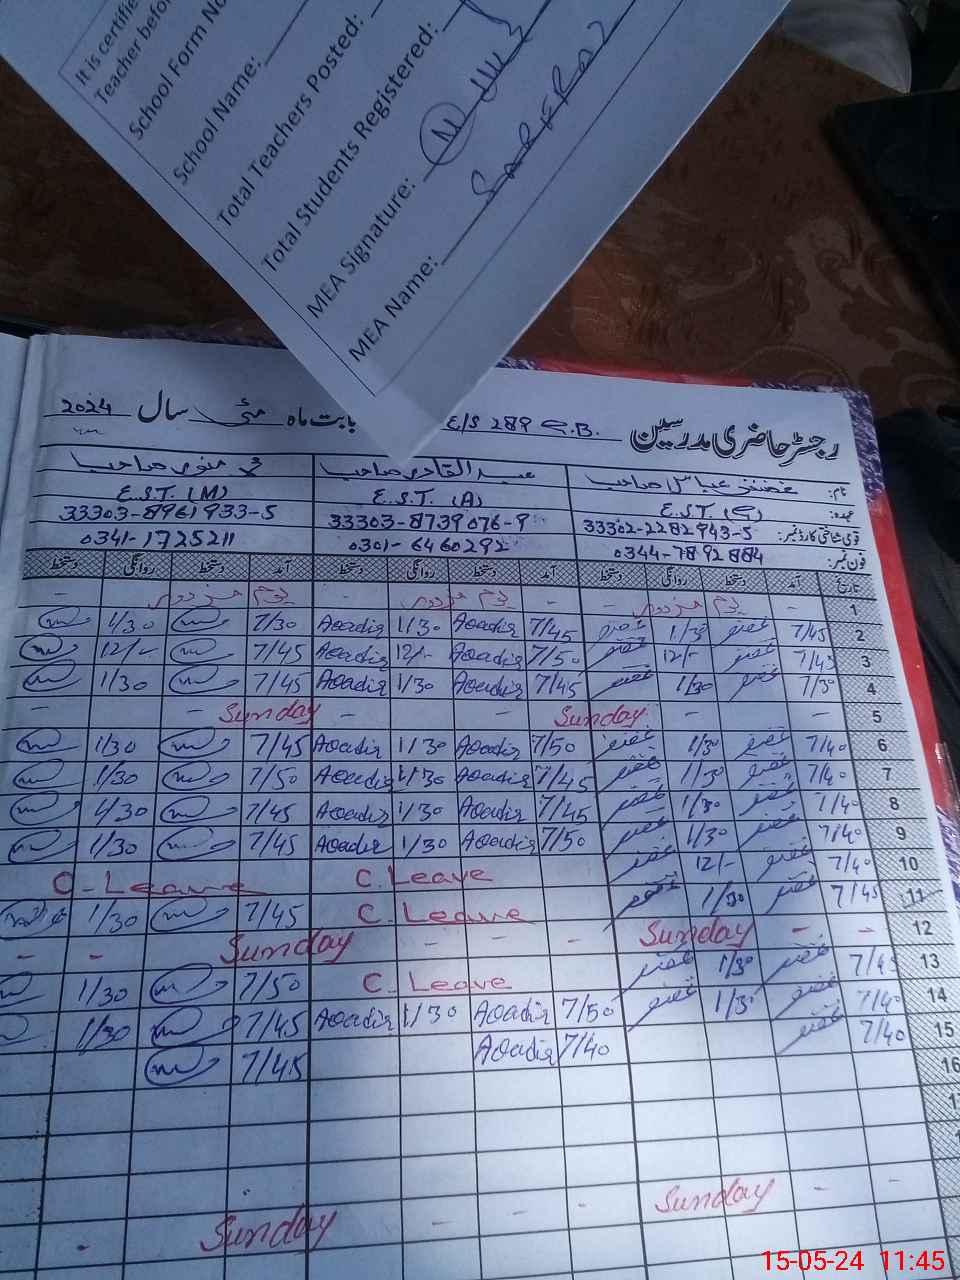 It is certifie
Teacher before
School Form No
School Name:
Total Teachers Posted:
Total Students Registered:
MEA Signature:
MEA Name: SARFRAZ
رجسٹر حاضری مدرسین E/S 289 بابت ماہ مئی سال 2024
نام: غضنفر عباس صاحب عبدالقادر صاحب محمد منور صاحب
عہدہ: E.S.T (C) E.S.T. (A) E.S.T. (M)
قومی شناختی کارڈ نمبر: 33302-2282943-5 33303-8739076-9 33303-8961933-5
فون نمبر: 0344-7892884 0301-6460292 0341-1725211
تاریخ آمد دستخط روانگی دستخط آمد دستخط روانگی دستخط آمد دستخط روانگی دستخط
1 - یوم مزدور - یوم مزدور - یوم مزدور -
2 7/45 غضنفر 1/30 غضنفر 7/45 Aqadir 1/30 Aqadir 7/30 1/30
3 7/45 غضنفر 12/- غضنفر 7/50 Aqadir 12/- Aqadir 7/45 12/-
4 7/30 غضنفر 1/30 غضنفر 7/45 Aqadir 1/30 Aqadir 7/45 1/30
5 - - Sunday - - Sunday - -
6 7/40 غضنفر 1/30 غضنفر 7/50 Aqadir 1/30 Aqadir 7/45 1/30
7 7/40 غضنفر 1/30 غضنفر 7/45 Aqadir 1/30 Aqadir 7/50 1/30
8 7/40 غضنفر 1/30 غضنفر 7/45 Aqadir 1/30 Aqadir 7/45 1/30
9 7/40 غضنفر 1/30 غضنفر 7/50 Aqadir 1/30 Aqadir 7/45 1/30
10 7/40 غضنفر 12/- غضنفر C. Leave C-Leave
11 7/45 غضنفر 1/30 غضنفر C. Leave 7/45 1/30
12 - - Sunday - - - Sunday - -
13 7/45 غضنفر 1/30 غضنفر C. Leave 7/50 1/30
14 7/40 غضنفر 1/30 غضنفر 7/50 Aqadir 1/30 Aqadir 7/45 1/30
15 7/40 غضنفر 7/40 Aqadir 7/45
16
Sunday - - Sunday
15-05-24 11:45